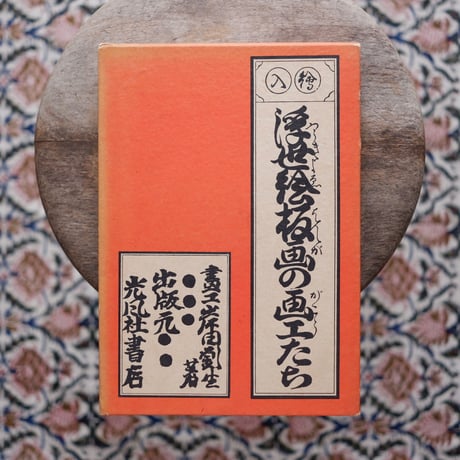 繪入
浮世絵板画の画工たち
畫工岸田劉生著
出版元
光風社書店